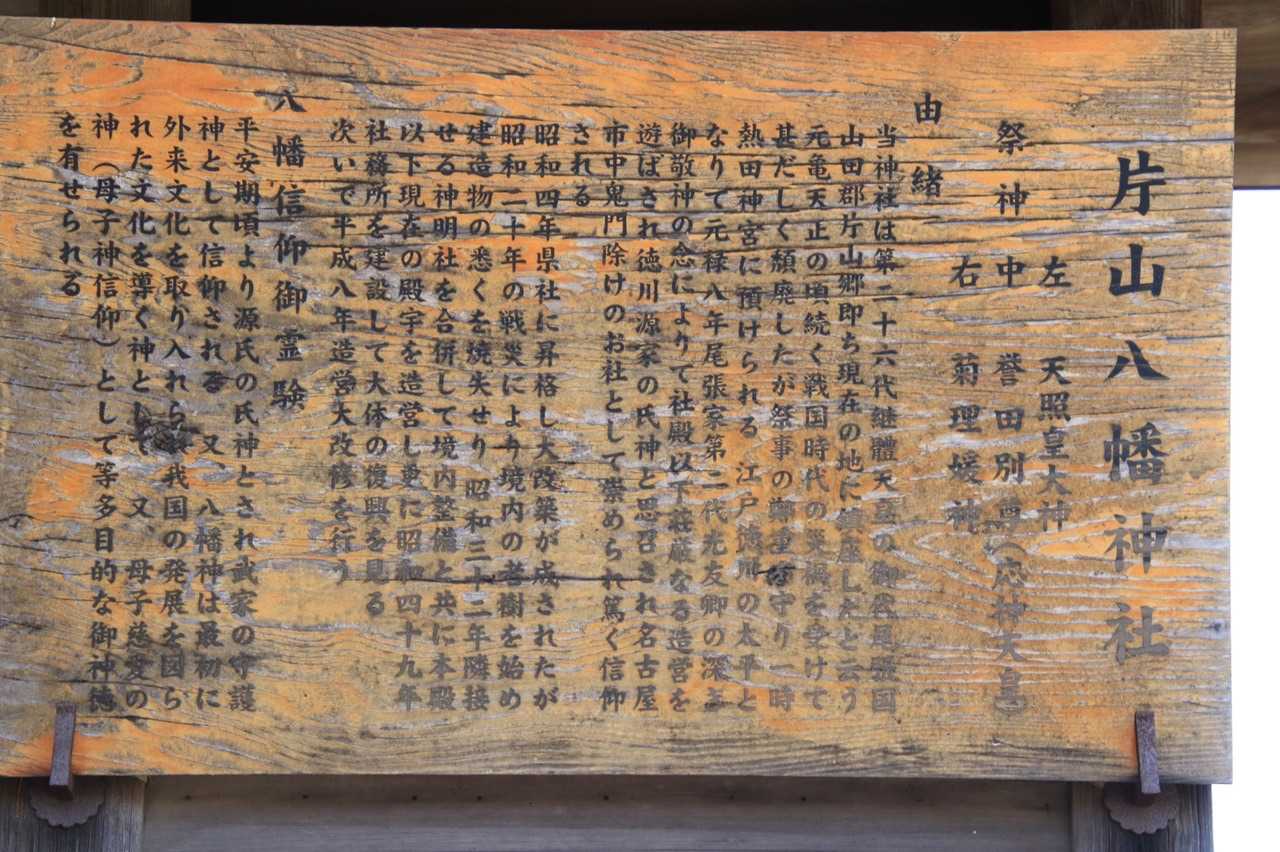 片山八幡神社
左 天照皇大神
祭神 中 誉田別尊（応神天皇）
右 菊理媛神
由緒
当神社は第二十六代継體天皇の御代尾張国
山田郡片山郷即ち現在の地に鎮座したと云う
元亀天正の頃続く戦国時代の災禍を受けて
甚だしく頽廃したが祭事の鄭重な守り一時
熱田神宮に預けられる 江戸徳川の太平と
なりて元禄八年尾張家第二代光友卿の深き
御敬神の念によりて社殿以下荘厳なる造営を
遊ばされ徳川源家の氏神と思召され名古屋
市中鬼門除けのお社として崇められ篤く信仰
される
昭和四年県社に昇格し大改築が成されたが
昭和二十年の戦災により境内の老樹を始め
建造物の悉くを焼失せり 昭和三十二年隣接
せる神明社を合併して境内整備と共に本殿
以下現在の殿宇を造営し更に昭和四十九年
社務所を建設して大体の復興を見る
次いで平成八年造営大改修を行う
八幡信仰御霊験
平安期頃より源氏の氏神とされ武家の守護
神として信仰される 又、八幡神は最初に
外来文化を取り入れられ我国の発展を図ら
れた文化を導く神として 又、母子慈愛の
神（母子神信仰）として等多目的な御神徳
を有せられる